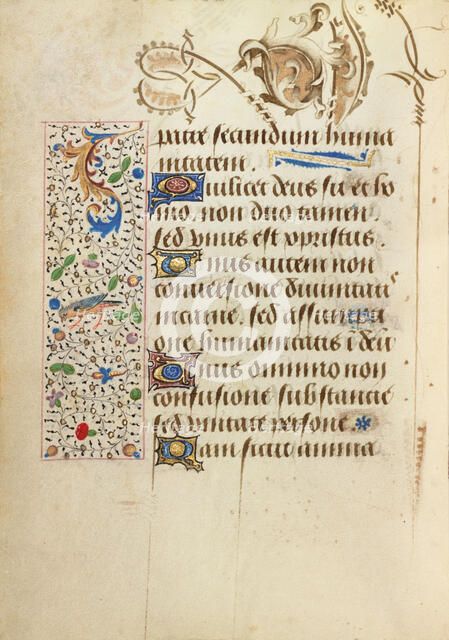 patre secundum huma
nitatem.
Qui licet deus sit et ho
mo, non duo tamen
sed vnus est xpristus.
Vnus autem non
conuersione diuinitatis
in carne, sed assumpti
one humanitatis i deu
Vnus omnino non
confusione substancie
sed vnitate persone
Nam sicut anima